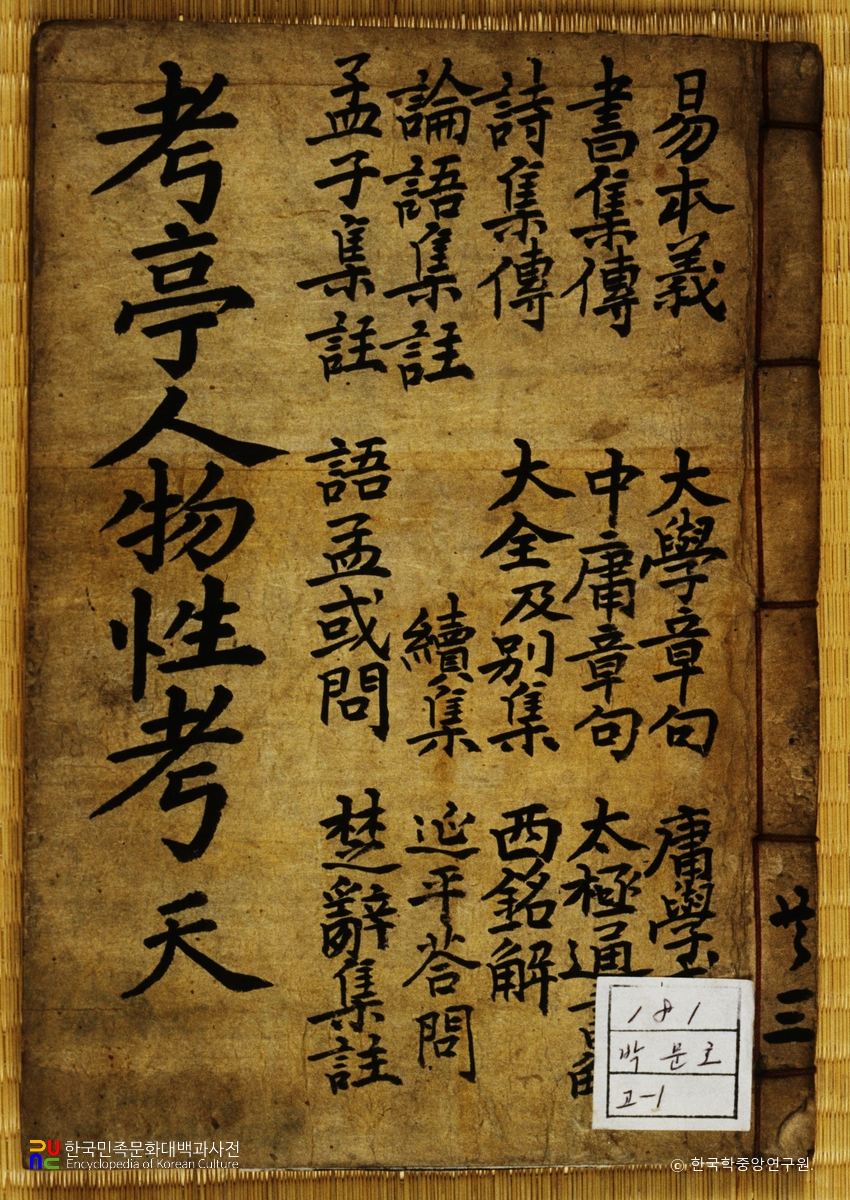 共三
易本義
書集傳
詩集傳
論語集註
孟子集註
大學章句
中庸章句
大全及別集
續集
語孟或問
庸學
太極通
西銘解
延平答問
楚辭集註
考亭人物性考 天
181
박문호
고-1
한국민족문화대백과사전
Encyclopedia of Korean Culture
© 한국학중앙연구원